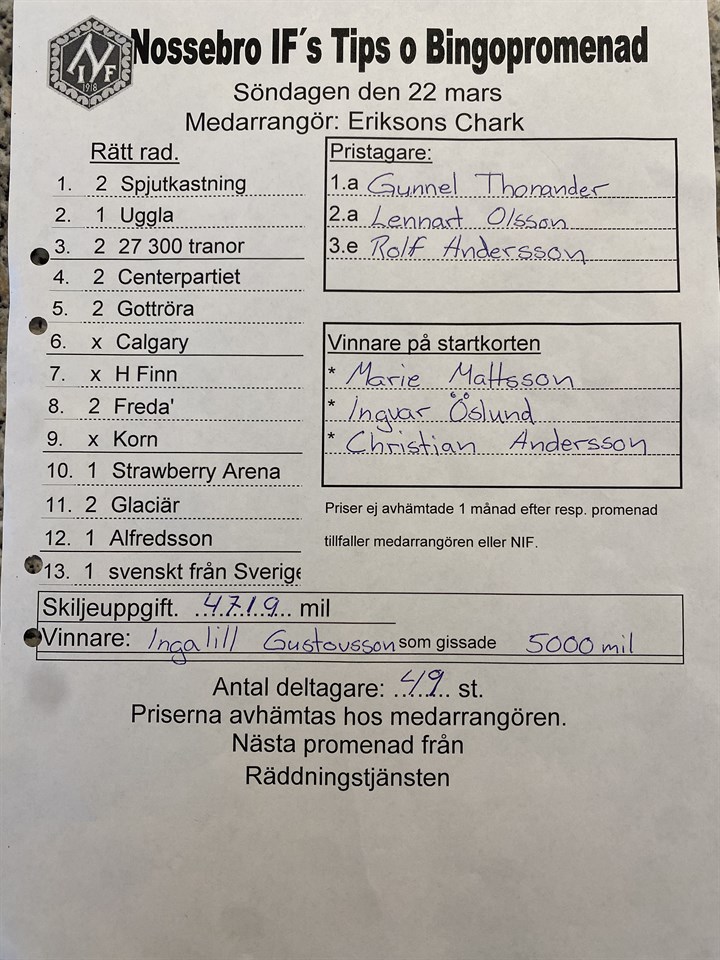 NIF
1918
Nossebro IF´s Tips o Bingopromenad
Söndagen den 22 mars
Medarrangör: Eriksons Chark
Rätt rad.
1. 2 Spjutkastning
2. 1 Uggla
3. 2 27 300 tranor
4. 2 Centerpartiet
5. 2 Gottröra
6. x Calgary
7. x H Finn
8. 2 Freda'
9. x Korn
10. 1 Strawberry Arena
11. 2 Glaciär
12. 1 Alfredsson
13. 1 svenskt från Sverige
Pristagare:
1.a Gunnel Thorander
2.a Lennart Olsson
3.e Rolf Andersson
Vinnare på startkorten
* Marie Mattsson
* Ingvar Öslund
* Christian Andersson
Priser ej avhämtade 1 månad efter resp. promenad
tillfaller medarrangören eller NIF.
Skiljeuppgift. 4719 mil
Vinnare: Ingalill Gustavsson som gissade 5000 mil
Antal deltagare: 49 st.
Priserna avhämtas hos medarrangören.
Nästa promenad från
Räddningstjänsten